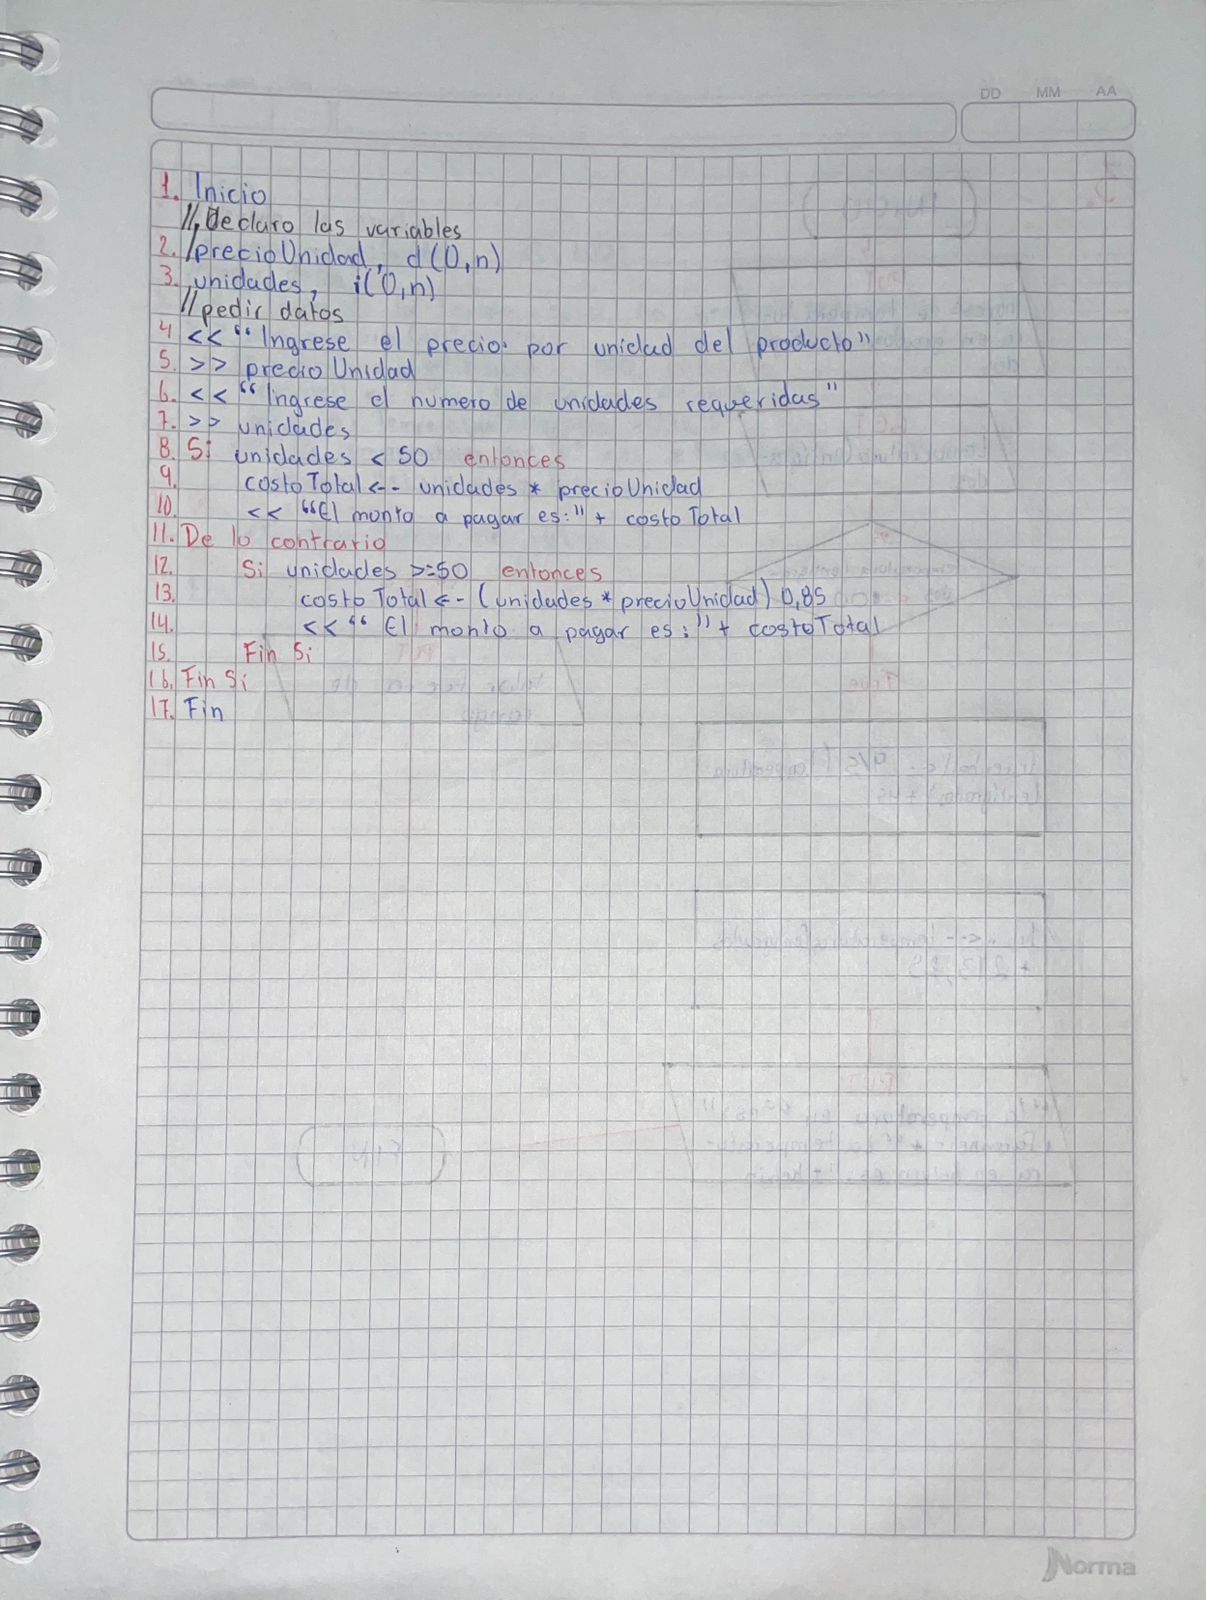 DD MM AA
1. Inicio
// Declaro las variables
2. precioUnidad, d(0,n)
3. unidades, i(0,n)
// pedir datos
4 << "Ingrese el precio por unidad del producto"
5. >> precioUnidad
6. << "Ingrese el numero de unidades requeridas"
7. >> unidades
8. Si unidades < 50 entonces
9. costoTotal <-- unidades * precioUnidad
10. << "El monto a pagar es:" + costoTotal
11. De lo contrario
12. Si unidades >=50 entonces
13. costoTotal <- (unidades * precioUnidad) 0,85
14. << "El monto a pagar es:" + costoTotal
15. Fin Si
16. Fin Si
17. Fin
Norma